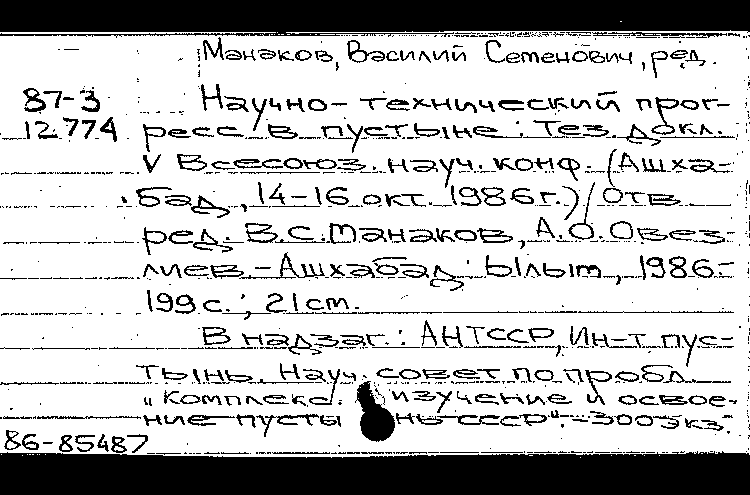 Манаков, Василий Семенович, ред.
87-3 Научно-технический прог-
12.774 ресс в пустыне: Тез. докл.
V Всесоюз. науч. конф. (Ашха-
бад, 14-16 окт. 1986г.) / Отв
ред. В.С. Манаков, А.О. Овез-
лиев. - Ашхабад: Ылым, 1986.-
199с.; 21cm.
В надзаг.: АНТССР, Ин-т пус-
тынь. Науч. совет по пробл.
"Комплекс. изучение и освое-
ние пустынь СССР". - 300экз.
86-85487